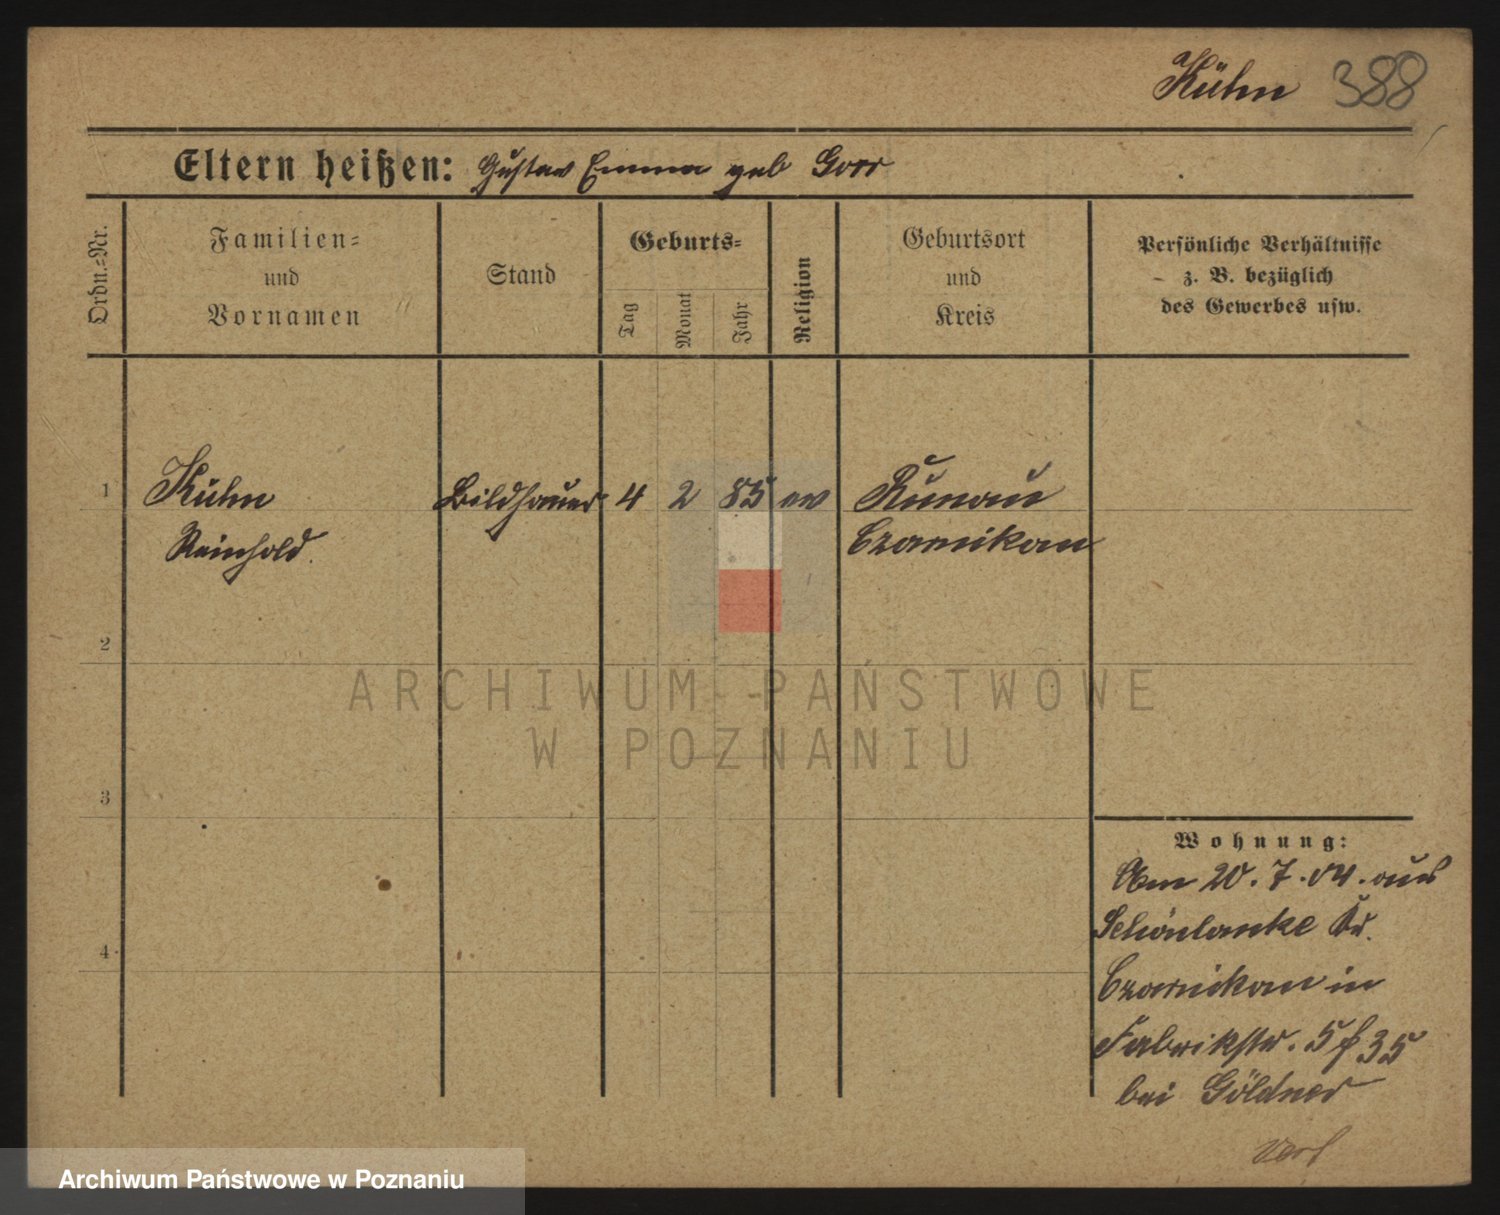 Kühn 388
Eltern heißen: Gustav Emma geb Gorr
Ordn.=Nr.
Familien=
und
Vornamen
Stand
Geburts=
Tag
Monat
Jahr
Religion
Geburtsort
und
Kreis
Persönliche Verhältnisse
z. B. bezüglich
des Gewerbes usw.
1 Kühn Bildhauer 4 2 85 ev Runau
Reinhold. Czarnikau
2
ARCHIWUM PAŃSTWOWE
W POZNANIU
3
Wohnung:
Am 20.7.04. aus
Schönlanke Kr.
4
Czarnikau in
Fabrikstr. 5 f 35
bei Göldner
Archiwum Państwowe w Poznaniu